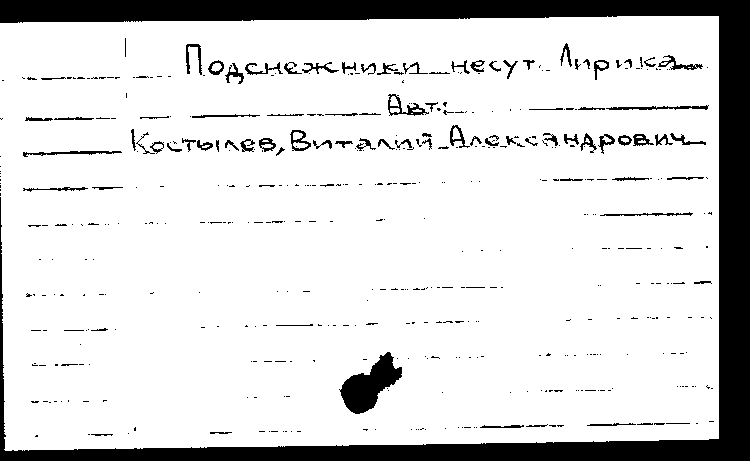 Подснежники несут. Лирика
Авт.:
Костылев, Виталий Александрович